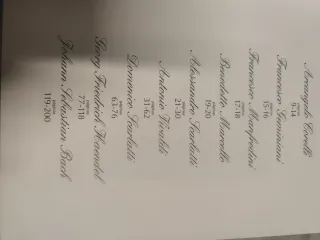 Arcangelo Corelli
9-14
Francesco Geminiani
15-16
Francesco Manfredini
17-18
Benedetto Marcello
19-20
Alessandro Scarlatti
21-30
Antonio Vivaldi
31-62
Domenico Scarlatti
63-76
Georg Friedrich Haendel
77-118
Johann Sebastian Bach
119-200